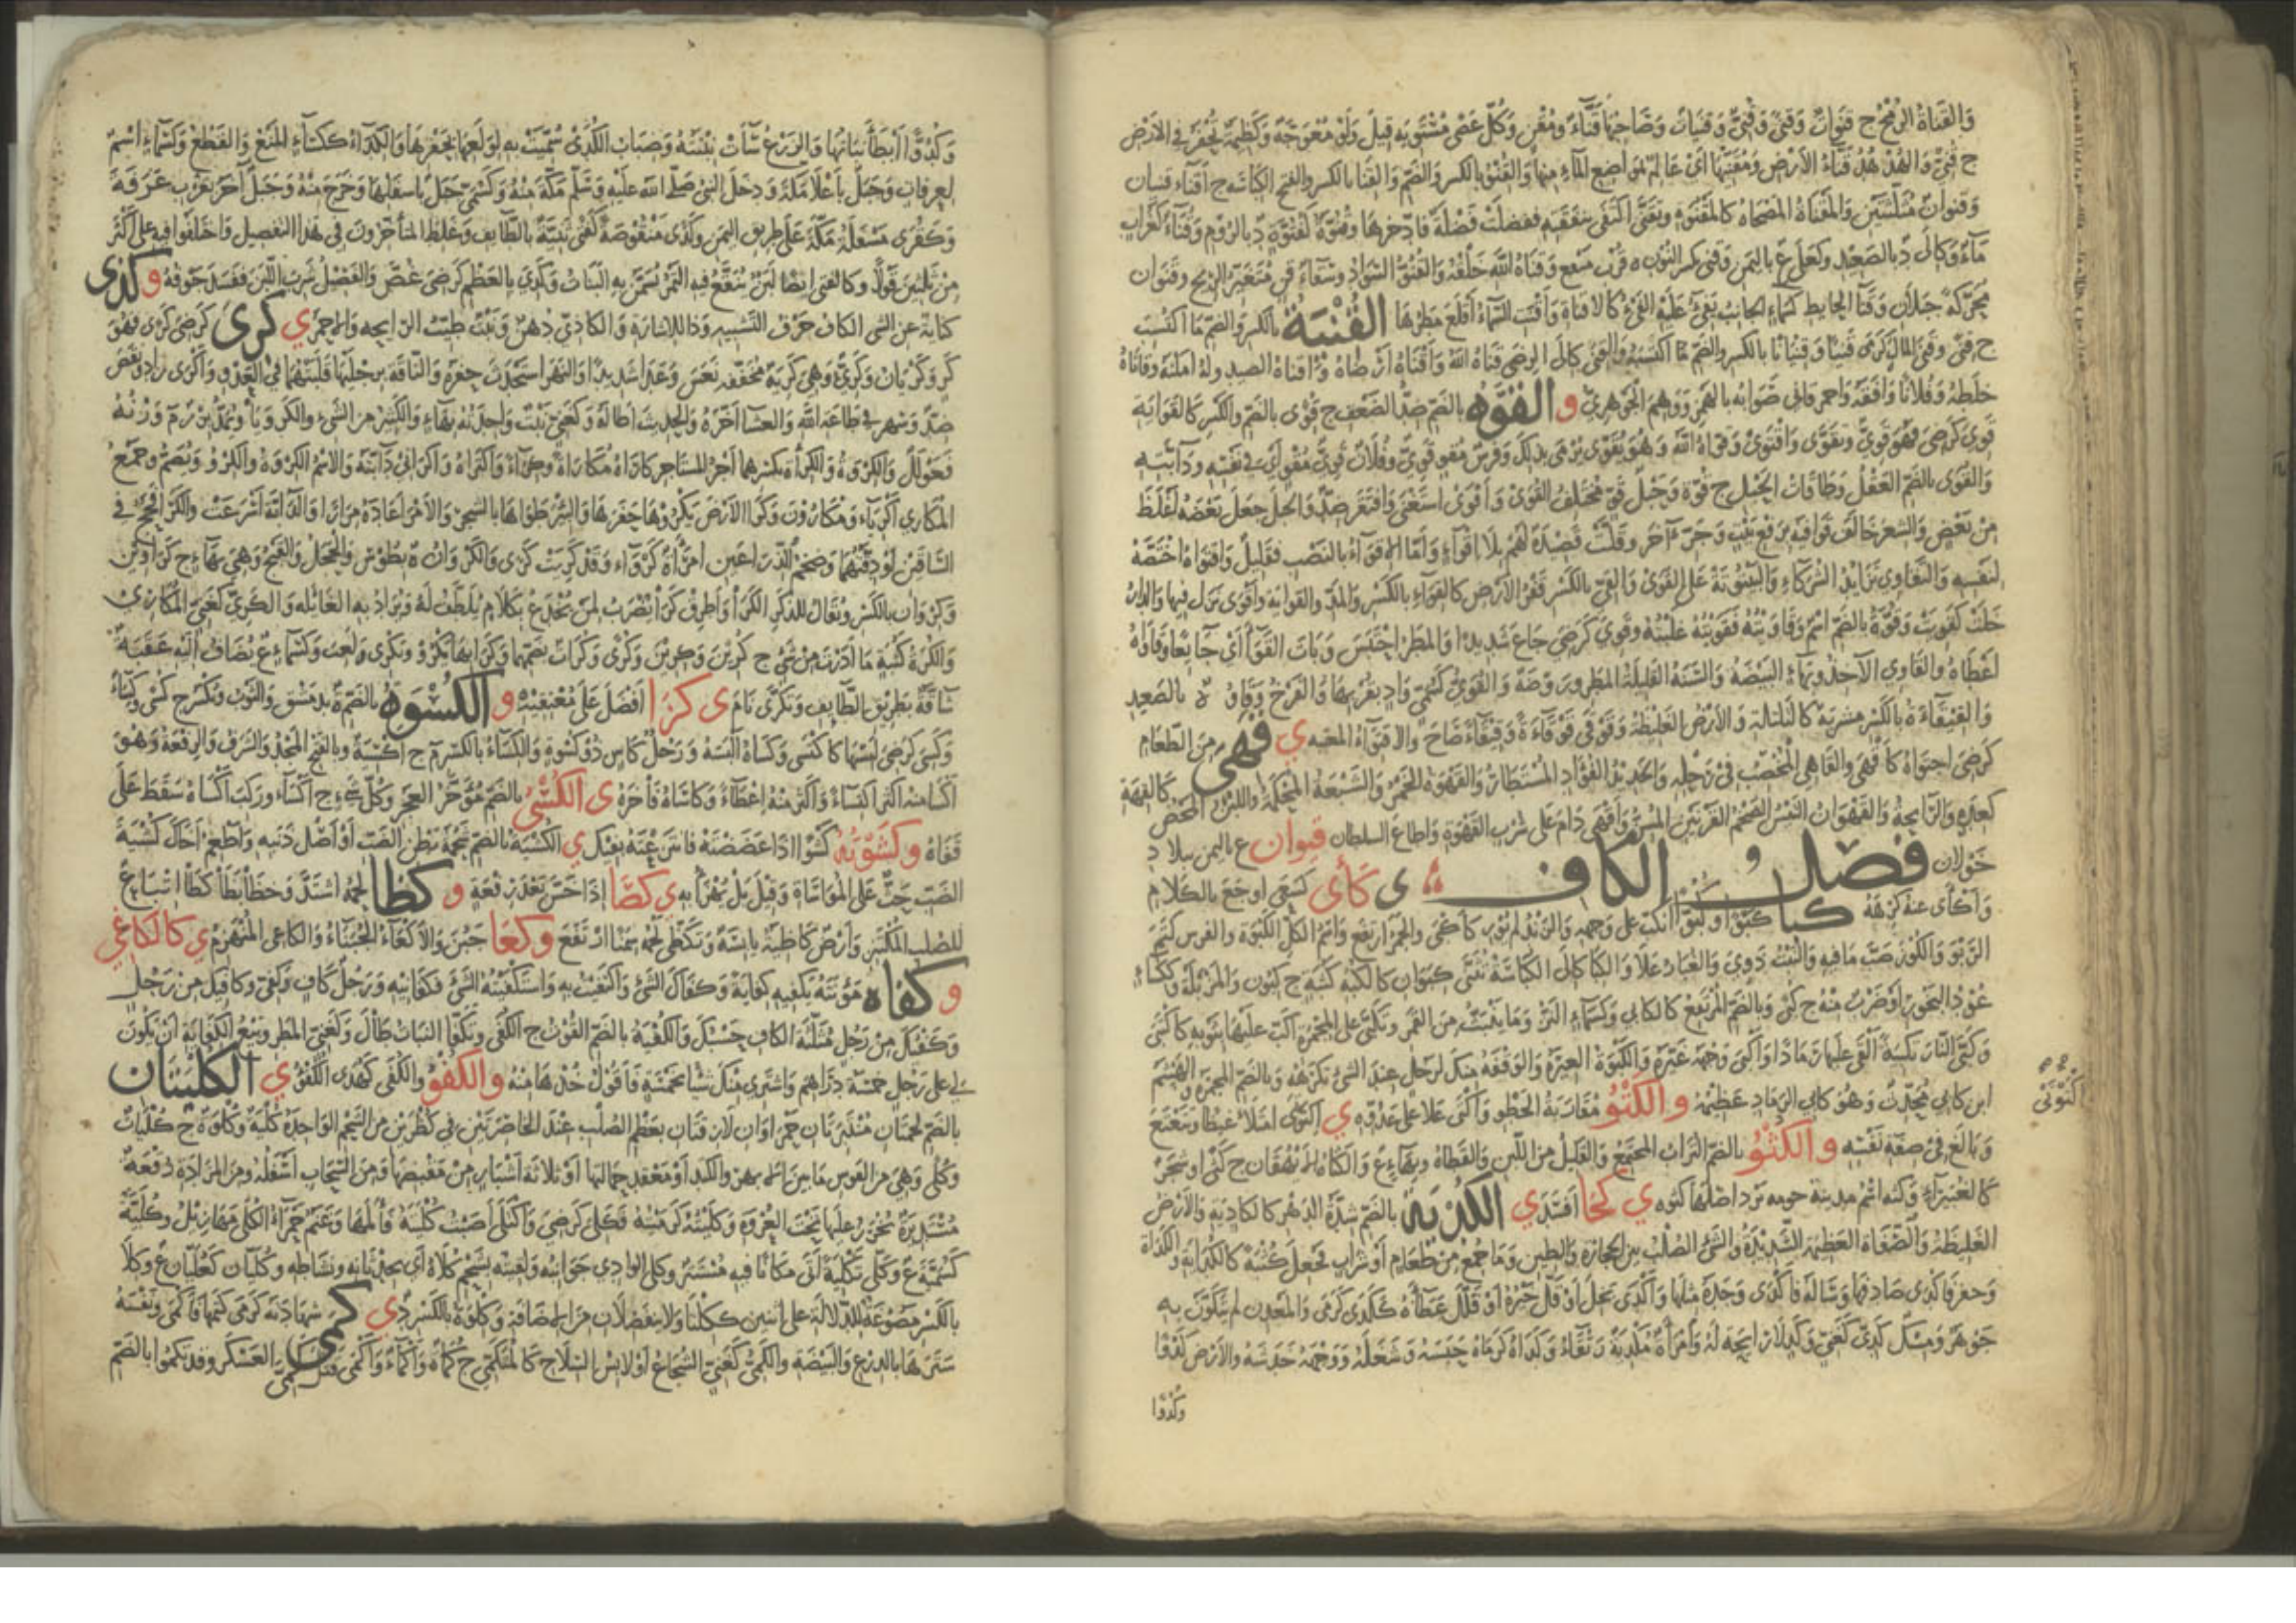 وَالقَنَاةُ الرُّمْحُ ج قَنَوَاتٌ وَقَنًى وَقُنِيٌّ وَقَنَيَاتٌ وَصَاحِبُهَا قَنَّاءٌ وَمُقْنٍ وَكُلُّ عَصًى مُسْتَوِيَةٍ قِيلَ وَلَوْ مُعْوَجَّةً وَكَظِيمَةٌ تُحْفَرُ فِي الأَرْضِ
ج قُنِيٌّ وَالهُدْهُدُ قَنَّاءُ الأَرْضِ وَمُقَنِّيهَا أَيْ عَالِمٌ بِمَوَاضِعِ المَاءِ مِنْهَا وَالقِنْوُ بِالكَسْرِ وَالضَّمِّ وَالقَنَا بِالكَسْرِ وَالفَتْحِ الكِبَاسَةُ ج أَقْنَاءٌ قنيان
وَقنوانٌ مُثَلَّثَتَيْنِ وَالمَقْنَاةُ المَضْحَاةُ كَالمَقْنُوَةِ
مَاءٌ وَكَإلَى د بِالصَّعِيدِ وَكَعَلَى ع بِاليَمَنِ وَقَنِيَ بِكَسْرِ النُّونِ ة قُرْبَ
وَقَنَاهُ اللهُ خَلَقَهُ وَالقُنُوُّ السَّوَادُ وَسِقَاءٌ قَنٍ مُتَغَيِّرُ الرِّيحِ وَقَنَوَان
مُحَرَّكَةً جَبَلَانِ وَقَنَا الحَايِطِ كَسَمَاءٍ الجَانِبُ يَفِيءُ عَلَيْهِ الفَيْءُ كَالاقناةِ وَأَقْنَتِ السَّمَاءُ أَقْلَعَ مَطَرُهَا القنيةُ بِالكَسْرِ وَالضَّمِّ مَا اكْتُسِبَ
ج قِنًى وَقَنَى المَالَ كَرَمَى قَنْيًا وَقِنْيَانًا بِالكَسْرِ وَالضَّمِّ اكْتَسَبَهُ وَالقِنَى كَإلَى الرِّضَى قَنَاهُ اللهُ وَأَقْنَاهُ أَرْضَاهُ وَأَقْنَاهُ الصيد وله أمكنه وقاناهُ
خَلَطَهُ وَفُلَانًا وَافَقَهُ وَأحمر قانى صَوَابُهُ بِالهَمْزِ وَوَهِمَ الجَوْهَرِيُّ و القُوّه بِالضَّمِّ ضِدُّ الضَّعْفِ ج قُوًى بِالضَّمِّ وَالكَسْرِ كَالقَوَايَةِ
قَوِيَ كَرَضِيَ فَهُوَ قَوِيٌّ وَتَقَوَّى وَاقْتَوَى وَقَوَّاهُ اللهُ وَهُوَ يُقَوَّى يُرْمَى بِذَلِكَ وَفَرَسٌ مُقْوٍ قَوِيٌّ وَفُلَانٌ قَوِيٌّ مُقْوٍ أَيْ فِي نَفْسِهِ وَدَابَّتِهِ
وَالقُوَى بِالضَّمِّ العَقْلُ وَطَاقَاتُ الحَبْلِ ج قُوَّة وَحَبْلٌ قَوٍ مُخْتَلِفُ القُوَى وَأَقْوَى اسْتَغْنَى وَافْتَقَرَ ضِدٌّ وَالحَبْلَ جَعَلَ بَعْضَهُ أَغْلَظَ
مِنْ بَعْضٍ وَالشِّعْرَ خَالَفَ قَوَافِيَهُ بِرَفْعِ بَيْتٍ وَجَرِّ آخَرَ وَقَلَّتْ قَصِيدَةٌ لَهُمْ بِلَا إِقْوَاءٍ وَأَمَّا الإقْوَاءُ بِالنَّصْبِ فَقَلِيلٌ وَاقتَوَاهُ اخْتَصَّهُ
لِنَفْسِهِ وَالتَّقَاوِي تَزَايُدُ الشُّرَكَاءِ وَالبَيْتُوتَةُ عَلَى القَوَى وَالقِيُّ بِالكَسْرِ قَفْرُ الأَرْضِ كَالقَوَاءِ بِالكَسْرِ وَالمَدِّ وَالقوايةِ وَأَقْوَى نَزَلَ فِيهَا وَالدَّارُ
خَلَتْ كَقَوِيَتْ وَقُوَّةُ بِالضَّمِّ اسْمٌ وَقَاوَيْتُهُ فَقَوَيْتُهُ غَلَبْتُهُ وَقَوِيَ كَرَضِيَ جَاعَ شَدِيدًا وَالمَطَرُ احْتَبَسَ وَبَاتَ القَوَاءَ أَيْ جَايِعًا وَقَاوَاهُ
أَعْطَاهُ وَالقَاوِي الآخِذُ وَبِهَاءٍ البَيْضَةُ وَالسَّنَةُ القَلِيلَةُ المَطَرِ وَرَوْضَةٌ وَالقُوَيُّ كَسُمَيٍّ وَادٍ بِقُرْبِهَا وَالفَرْخُ وَقَاوُ ة بِالصَّعِيدِ
وَالقِيقَاءَةُ بِالكَسْرِ مِشْرَبَةٌ كَالتَّلْتَلَةِ وَالأَرْضُ الغَلِيظَةُ وَقَوْقَى قَوْقَاةً وَقِيقَاءً صَاحَ ي قَهِيَ مِنَ الطَّعَامِ
كَرَضِيَ اجْتَوَاهُ كَأَقْهَى وَالقَاهِي المُخْصِبُ فِي رَحْلِهِ وَالحَدِيدُ الفُؤَادِ المُسْتَطَارُ وَالقَهْوَةُ الخَمْرُ وَالشَّبْعَةُ المُحْكَمَةُ وَاللَّبَنُ المَحْضُ كَالقِهَةِ
كَعِدَةٍ وَالرَّايِحَةُ وَالقَهْوَانُ التَّيْسُ الضَّخْمُ القَرْنَيْنِ المُسِنُّ وَأَقْهَى دَامَ عَلَى شُرْبِ القَهْوَةِ وَأطَاعَ السُّلطَانَ قيوان ع باليمن ببلاد
خَوْلان فَصْلُ الكَاف ي كَأَى كَسَعَى أوجَعَ بِالكَلَامِ
وَأَكْأَى عَنْهُ كَرِهَهُ كبا كَبْوًا وَكُبُوًّا انْكَبَّ عَلَى وَجْهِهِ وَالزَّنْدُ لَمْ يُورِ كَأَكْبَى وَالجَمْرُ ارْتَفَعَ وَاسْمُ الكُلِّ الكَبْوَة وَالفرس كتم
الرَّبْوَ وَالكُوزَ صَبَّ مَا فِيهِ وَالنَّبْتُ ذَوِيَ وَالغُبَارُ عَلَا وَالكِبَا كَإلَى الكُنَاسَةُ تُثَنَّى كِبَوَانِ كَالكُبَةِ كَثُبَةٍ ج كُبُونَ وَالمَزْبَلَةُ وككساءٍ
عُودُ البَخُورِ أَوْ ضَرْبٌ مِنْهُ ج كُبًى وَبِالضَّمِّ المُرْتَفِعُ كَالكَابِي وَكَسَمَاءٍ النَّزُّ وَمَا يَنْبَثُّ مِنَ القَمَرِ وَتَكَبَّى عَلَى المِجْمَرَةِ أَكَبَّ عَلَيْهَا بِثَوْبِهِ كَاكْتَبَى
وَكَبَّى النَّارَ تَكْبِيَةً أَلْقَى عَلَيْهَا رَمَادًا وَأَكْبَى وَجْهَهُ غَيَّرَهُ وَالكَبْوَةُ الغَبَرَةُ وَالوَقْفَةُ مِنْكَ لِرَجُلٍ عِنْدَ الشَّيْءِ تَكْرَهُهُ وَبِالضَّمِّ المِجْمَرَةُ وَالهَيْثَمُ
ابْنُ كَابِي مُحَدِّثٌ وَهُوَ كَابِي الرَّمَادِ عَظِيمُهُ و الكَتْوُ مُقَارَبَةُ الخَطْوِ وَأَكْتَى عَلَا عَلَى عَدُوِّهِ ي اكْتَوْتَى امْتَلَأَ غَيْظًا وَتَتَعْتَعَ
وَبَالَغَ فِي صِفَةِ نَفْسِهِ و الكُثْوُ بِالضَّمِّ التُّرَابُ المُجْتَمِعُ وَالقَلِيلُ مِنَ اللَّبَنِ وَالقَطَاةُ وَبِهَاءٍ ع وَالكَثَاةُ الأيْهُقَانُ ج كَثًى أو شجر
كَالغُبَيْرَاءِ وَكثه اسْمُ مدينة حومه يزد أصلها كثوه ي كحا أفْسَدَ ي الكُدْيَةُ بِالضَّمِّ شِدَّةُ الدَّهْرِ كَالكَادِيَةِ وَالأَرْضُ
الغَلِيظَةُ وَالصَّفَاةُ العَظِيمَةُ الشَّدِيدَةُ وَالشَّيْءُ الصُّلْبُ بَيْنَ الحِجَارَةِ وَالطِّينِ وَمَا جُمِعَ مِنْ طَعَامٍ أَوْ شَرَابٍ فَجُعِلَ كُثْبَةً كَالكُدَايَةِ وَالكُدَاةِ
وَحَفَرَ فَأَكْدَى صَادَفَهَا وَسَأَلَهُ فَأَكْدَى وَجَدَهُ مِثْلَهَا وَأَكْدَى بَخِلَ أَوْ قَلَّ خَيْرُهُ أَوْ قَلَّلَ عَطَاءَهُ كَكَدَى كَرَمَى وَالمَعْدِنُ لَمْ يَتَكَوَّنْ بِهِ
جَوْهَرٌ وَمِسْكٌ كَدِيٌّ كَغَنِيٍّ وَكَدٍ لَا رَايِحَةَ لَهُ وَامْرَأَةٌ مُكْدِيَةٌ رَتْقَاءُ وَكَدَاهُ كَرَمَاهُ حَبَسَهُ وَشَغَلَهُ وَوَجْهَهُ خَدَشَهُ وَالأَرْضُ كَدْوًا
وكُدُوًّا
اكْتَوْتَى
وَكُدُوًّا أَبْطَأَ نَبَاتُهَا وَالزَّرْعُ سَاءَتْ نِبْتَتُهُ وَضِبَابُ الكُدَى سُمِّيَتْ بِهِ لِوَلَعِهَا بِحَفْرِهَا وَالكِدَاءُ كَكِسَاءٍ المَنْعُ وَالقَطْعُ وَكَسَمَاءٍ اسْمٌ
لِعَرَفَاتٍ وَجَبَلٌ بِأَعْلَا مَكَّةَ وَدَخَلَ النَّبِيُّ صَلَّى اللهُ عَلَيْهِ وَسَلَّمَ مَكَّةَ مِنْهُ وَكَسُمَيٍّ جَبَلٌ بِأَسْفَلِهَا وَخَرَجَ مِنْهُ وَجَبَلٌ آخَرُ بِقُرْبِ عَرَفَةَ
وَكَقُرَى مَسْفَلَةُ مَكَّةَ عَلَى طَرِيقِ اليَمَنِ وَكُدًى مَنْقُوصَةً كَفَتًى ثَنِيَّةٌ بِالطَّايِفِ وَغَلِطَ المُتَأَخِّرُونَ فِي هَذَا التَّفْصِيلِ وَاخْتَلَفُوا فِيهِ عَلَى أَكْثَرَ
مِنْ ثَلَثِينَ قَوْلًا وَكَالفَتَى أيضا لَبَنٌ يُنْقَعُ فِيهِ التَّمْرُ تُسَمَّنُ بِهِ البَنَاتُ وَكَدِيَ بِالعَظْمِ كَرَضِيَ غَصَّ وَالفَصِيلُ شَرِبَ اللَّبَنَ فَفَسَدَ جَوْفُهُ و كَذَى
كِنَايَةٌ عَنِ الشَّي الكَافُ حَرْفُ التَّشْبِيهِ وَذَا لِلإشَارَةِ وَالكَاذِيُّ دُهْنٌ وَنَبْتٌ طَيِّبُ الرَّايِحَةِ وَالأَحْمَرُ ي كَرِيَ كَرَضِيَ كَرًى فَهُوَ
كَرٍ وَكَرْيَانُ وَكَرِيٌّ وَهِيَ كَرِيَةٌ مُخَفَّفَةً نَعَسَ وَعَدَا شَدِيدًا وَالنَّهَرَ اسْتَحْدَثَ حَفْرَهُ وَالنَّاقَةُ بِرِجْلَيْهَا قَلَبَتْهُمَا فِي العَدْوِ وَأَكْرَى زَادَ وَنَقَصَ
ضِدٌّ وَسَهِرَ فِي طَاعَةِ اللهِ وَالعَشَاءَ أَخَّرَهُ وَالحَدِيثَ أَطَالَهُ وَكَغَنِيٍّ نَبْتٌ وَاحِدَتُهُ بِهَاءٍ وَالكَثِيرُ مِنَ الشَّيْءِ
فَعَوْلَلٌ وَالكِرْوَةُ وَالكِرَاءُ بِكَسْرِهِمَا أَجْرُ المُسْتَأْجَرِ كَارَاهُ مُكَارَاةً وَكِرَاءً وَاكْتَرَاهُ وَأَكْرَانِي دَابَّتَهُ وَالاسْمُ الكِرْوَةُ وَالكَرْوُ وَيُضَمُّ وَجَمْعُ
المُكَارِي أَكْرِيَاءُ وَمُكَارُونَ وَكَرَا الأَرْضَ يَكْرُوهَا حَفَرَهَا وَالبِئْرَ طَوَاهَا بِالشَّجَرِ وَالأَمْرَ أَعَادَهُ مِرَارًا وَالدَّابَّةُ أَسْرَعَتْ وَالكَرَا فَحَجٌ فِي
السَّاقَيْنِ أَوْ دِقَّتُهُمَا وَضِخَمُ الذِّرَاعَيْنِ امْرَأَةٌ كَرْوَاءُ وَقَدْ كَرِيَتْ كَرًى وَالكَرَوَانُ ة بِطُوسَ وَالحَجَلُ وَالقَبْجُ وَهِيَ بِهَاءٍ ج كَرَاوِينُ
وَكِرْوَان بِالكَسْرِ وَيُقَالُ لِلذَّكَرِ الكَرَا وَأَطْرِقْ كَرَا يُضْرَبُ لِمَنْ يُخْدَعُ بِكَلَامٍ يُلَطَّفُ لَهُ وَيُرَادُ بِهِ الغَائِلَةُ وَالكَرِيُّ كَغَنِيٍّ المُكَارِي
وَالكُرَةُ كَثُبَةٍ مَا أَدَرْتَ مِنْ شَيْءٍ ج كُرِينَ وَكِرِينَ وَكُرًى وَكُرَاتٌ بِضَمِّهَا وَكَرَا بِهَا يَكْرُو وَيَكْرِي لَعِبَ وَكَسَمَاءٍ ع يُضَافُ إلَيْهِ عَقَبَةٌ
شَاقَّةٌ بِطَرِيقِ الطَّايِفِ وَتَكَرَّى نَامَ ي كزا أفْضَلَ عَلَى مُعْتَفِيهِ و الكُسْوَه بِالضَّمِّ ة بِدِمَشْقَ وَالثَّوْبُ وَتُكْسَرُ ج كُسًى وَكِسَاءٌ
وَكَسِيَ كَرَضِيَ لَبِسَهَا كَاكْتَسَى وَكَسَاهُ أَلْبَسَهُ وَرَجُلٌ كَاسٍ ذُو كِسْوَةٍ وَالكِسَاءُ بِالكَسْرِ م ج أَكْسِيَةٌ وَبِالفَتْحِ المَجْدُ وَالشَّرَفُ وَالرِّفْعَةُ وَهُوَ
أَكْسَا مِنْهُ أَكْثَرُ اكْتِسَاءً وَأَكْثَرُ مِنْهُ إعْطَاءً وَكَاسَاهُ فَاخَرَهُ ي الكُسْيُ بِالضَّمِّ مُؤَخَّرُ العَجُزِ وَكُلِّ شَيْءٍ ج أَكْسَاءٌ وَرَكِبَ أَكْسَاهُ سَقَطَ عَلَى
قَفَاهُ و كَشَوْتُهُ كَشْوًا إذَا عَضَضْتَهُ فَانْتَزَعْتَهُ بِفِيكَ ي الكُشْيَةُ بِالضَّمِّ شَحْمَةُ بَطْنِ الضَّبِّ أَوْ أَصْلُ ذَنَبِهِ وَأَطْعِمْ أَخَاكَ كُشْيَةَ
الضَّبِّ حَثٌّ عَلَى المُوَاسَاةِ وَقِيلَ بَلْ يُهْزَأُ بِهِ ي كَصَا إذَا خَسَّ بَعْدَ رِفْعَةٍ و كَظَا لَحْمُهُ اشْتَدَّ وَخَظَا بَظَا كَظَا اتْبَاعٌ
لِلصُّلْبِ المُكْتَنِزِ وَأَرْضٌ كَاظِيَةٌ يَابِسَةٌ وَتَكَظَّى لَحْمُهُ سِمَنًا ارْتَفَعَ و كَعَا جَبُنَ وَالأَكْعَاءُ الجُبَنَاءُ وَالكَاعِي المُنْهَزِمُ ي كالكاغي
و كفاه مَؤُنَتَهُ يَكْفِيهِ كِفَايَةً وَكَفَاكَ الشَّيْءُ وَاكْتَفَيْتُ بِهِ وَاسْتَكْفَيْتُهُ الشَّيْءَ فَكَفَانِيهِ وَرَجُلٌ كَافٍ وَكَفِيٌّ وكافيك مِنْ رَجُلٍ
وَكَفْيُكَ مِنْ رَجُلٍ مُثَلَّثَةَ الكَافِ حَسْبُكَ وَالكُفْيَةُ بِالضَّمِّ القُوتُ ج الكُفَى وَتَكَفَّى النَّبَاتُ طَالَ وَكَغَنِيٍّ المَطَرُ وَبَيْعُ الكِفَايَةِ أَنْ يَكُونَ
لِي عَلَى رَجُلٍ خَمْسَةُ دَرَاهِمَ وَأَشْتَرِي مِنْكَ شَيْئًا بِخَمْسَةٍ فَأَقُولُ خُذْهَا مِنْهُ و الكُفْوُ وَالكُفَى كَهُدًى الكُفْؤُ ي الكُلْيَتَان
بِالضَّمِّ لَحْمَتَانِ مُنْتَبِرَتَانِ حَمْرَاوَانِ لَازِقَتَانِ بِعَظْمِ الصُّلْبِ عِنْدَ الخَاصِرَتَيْنِ فِي كُظْرَيْنِ مِنَ الشَّحْمِ الوَاحِدَةُ كُلْيَةٌ وَكُلْوَةٌ ج كُلْيَاتٌ
وَكُلًى وَهِيَ مِنَ القَوْسِ مَا بَيْنَ الأبهر والكبد أَوْ مَعْقِدُ حِمَالَتِهَا أَوْ ثَلَاثَةُ أَشْبَارٍ مِنْ مَقْبِضِهَا وَمِنَ السَّحَابِ أَسْفَلُهُ وَمِنَ المَزَادَةِ رُقْعَةٌ
مُسْتَدِيرَةٌ تُخْرَزُ عَلَيْهَا تَحْتَ العُرْوَةِ وَكَلَيْتُهُ كَرَمَيْتُهُ فَكَلِيَ كَرَضِيَ وَاكْتَلَى أَصَبْتُ كُلْيَتَهُ فَآلَمْتُهَا وَغَنَمٌ حَمْرَاءُ الكُلَى مَهَازِيلُ وَكُلَيَّةُ
كَسُمَيَّةَ ع وَكَلَّى تَكْلِيَةً أَتَى مَكَانًا فِيهِ مُسْتَتَرٌ وَكُلَى الوَادِي جَوَانِبُهُ وَلَقِيتُهُ بِشَحْمِ كُلَاهُ أَيْ بِحِدْثَانِهِ وَنَشَاطِهِ وَكُلْيَانُ كَعُلْيَان ع وَكِلَا
بِالكَسْرِ مَصُوغَةٌ لِلدِّلَالَةِ عَلَى اثْنَيْنِ كَكِلْتَا وَلَا يَنْفَصِلَانِ مِنَ الإِضَافَةِ وَكِلْوَةُ بِالكَسْرِ د ي كَمَى شَهَادَتَهُ كَرَمَى كَتَمَهَا كَأَكْمَى وَنَفْسَهُ
سَتَرَهَا بِالدِّرْعِ وَالبَيْضَةِ وَالكَمِيُّ كَغَنِيٍّ الشُّجَاعُ أَوْ لَابِسُ السِّلَاحِ كَالمُتَكَمِّي ج كُمَاةٌ وَأَكْمَاءٌ وَأَكْمَى قَتَلَ كَمِيَّ العَسْكَرِ وَقَدْ تُكُمُّوا بِالضَّمِّ